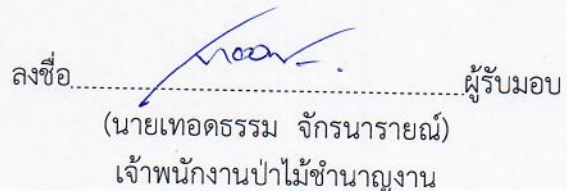 ลงชื่อ................................................ผู้รับมอบ
(นายเทอดธรรม จักรนารายณ์)
เจ้าพนักงานป่าไม้ชำนาญงาน